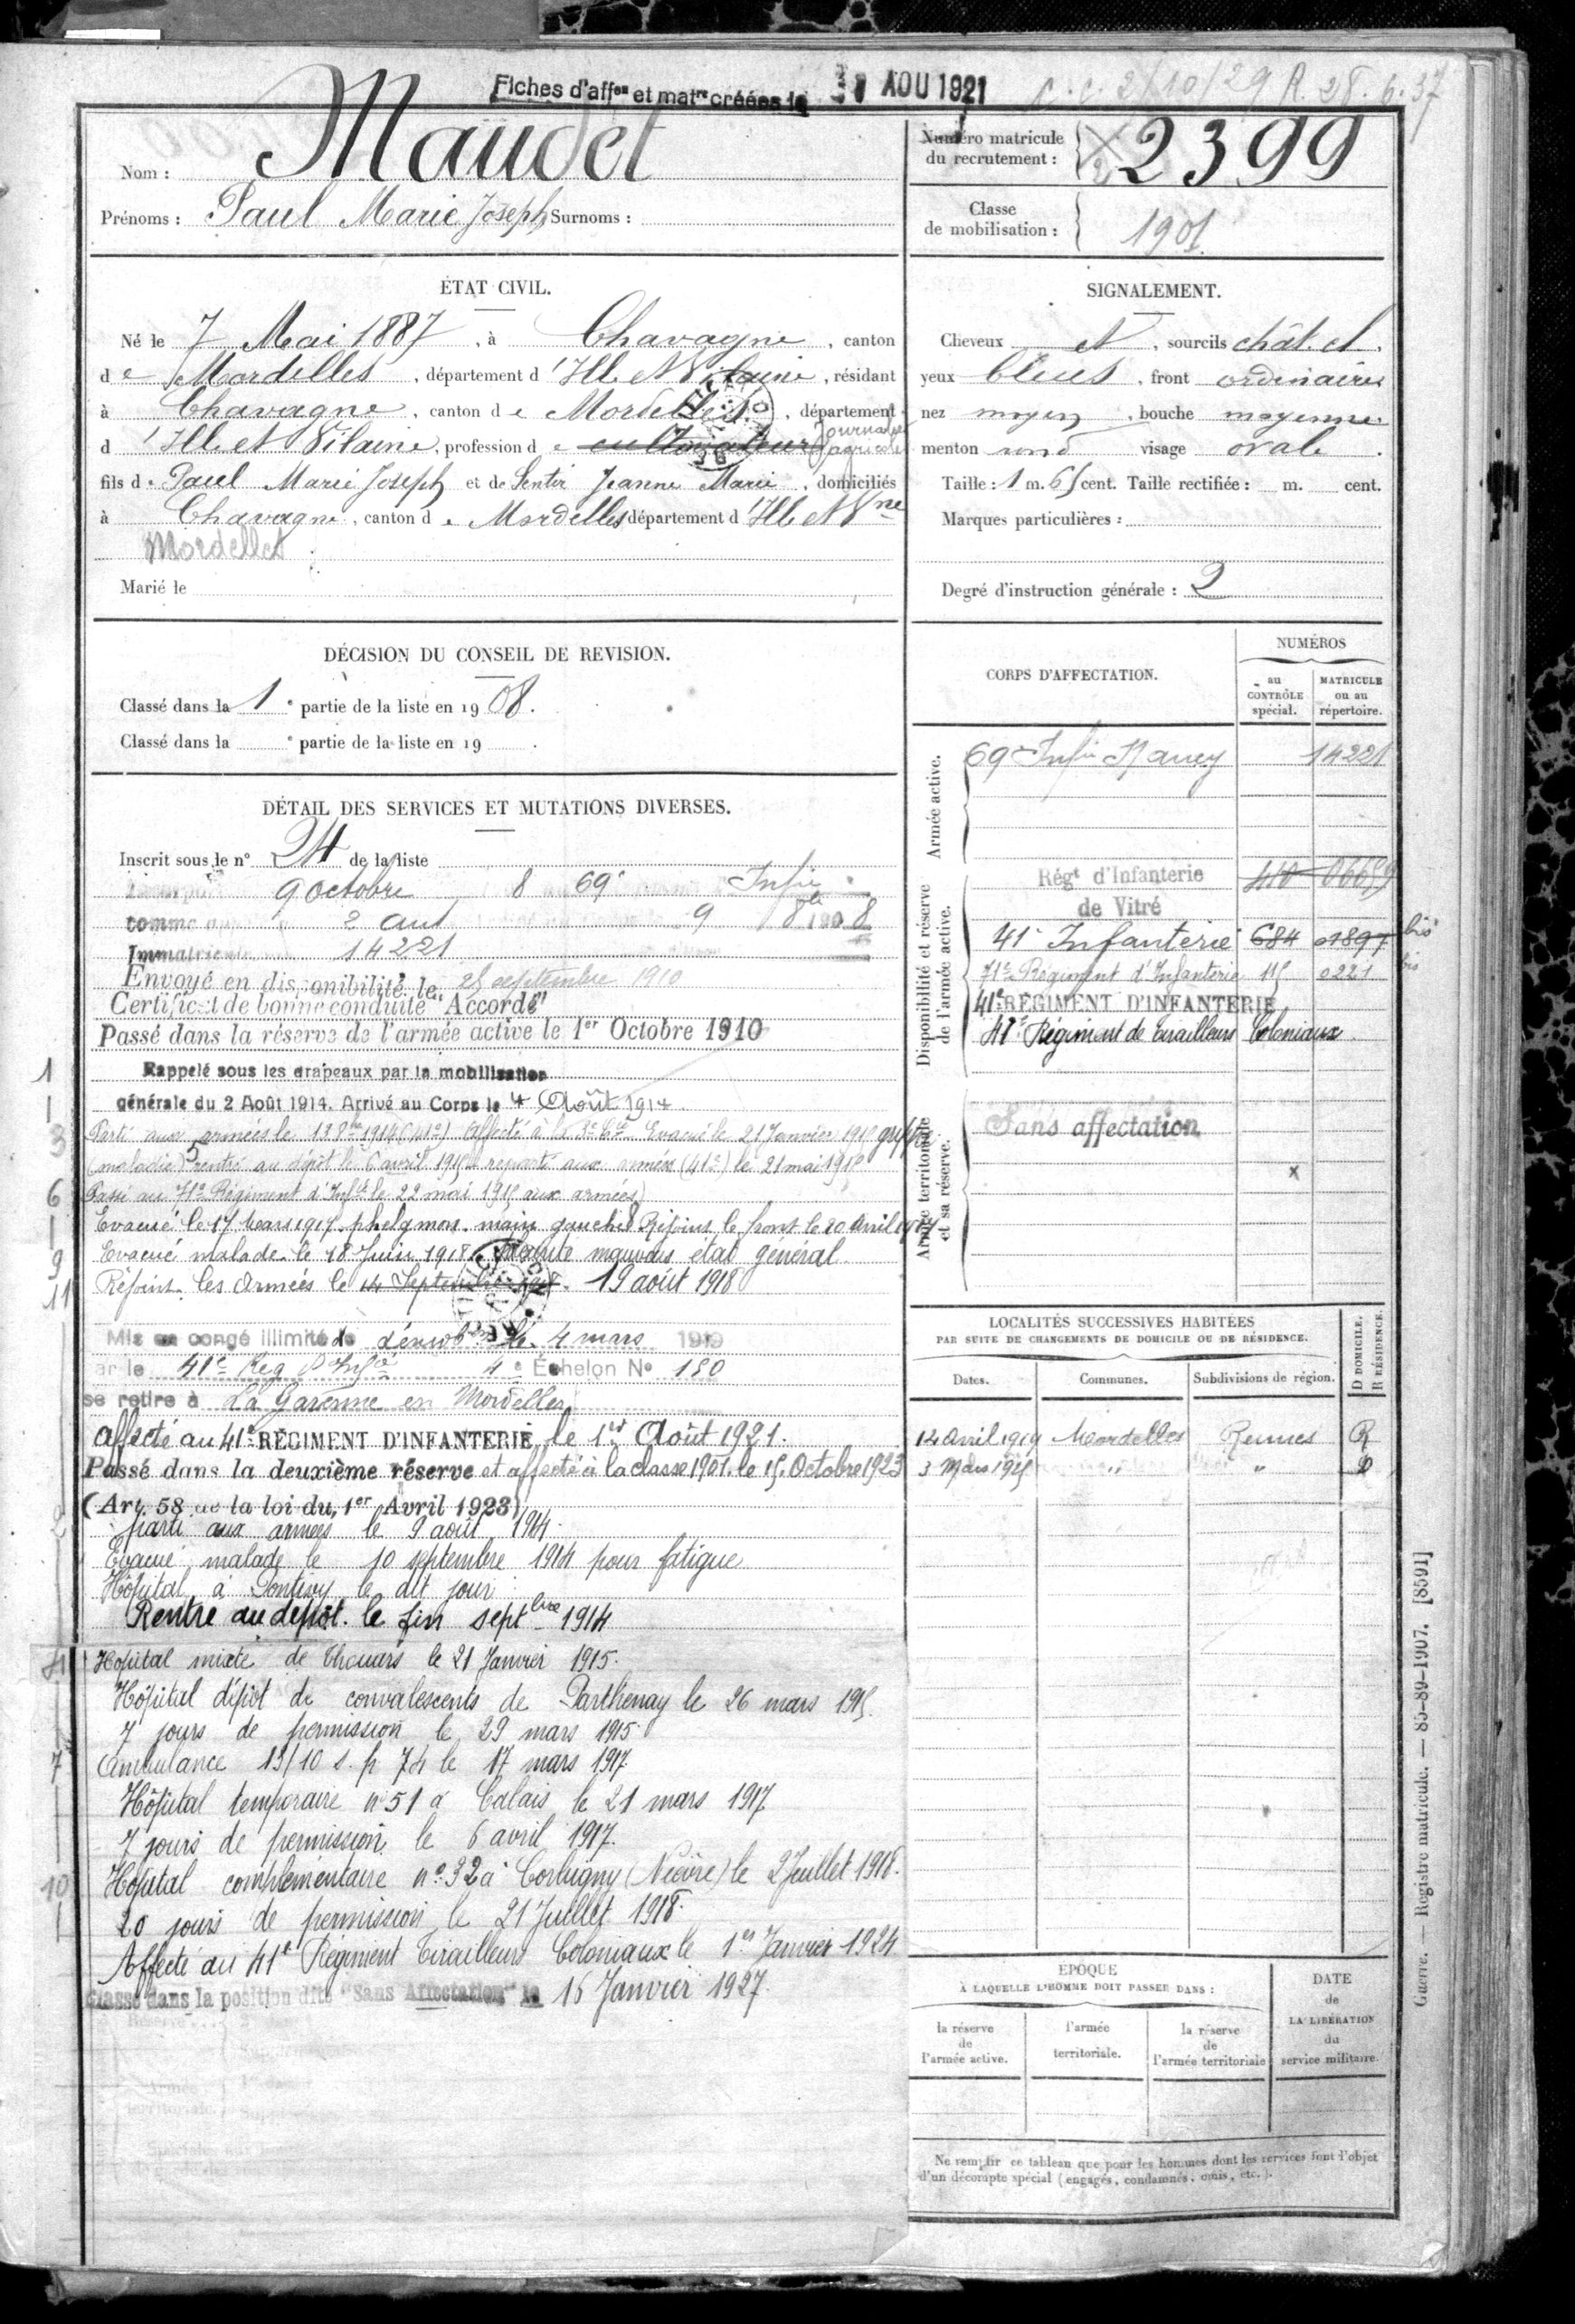 Fiches d'affon et matre créées le 31 AOU 1921
C.C. 2/10/29 R. 28.6.37
Nom : Maudet
Prénoms : Paul Marie Joseph Surnoms :
Numéro matricule du recrutement : 2399
Classe de mobilisation : 1901
ÉTAT CIVIL.
Né le 7 Mai 1887, à Chavagne, canton
de Mordelles, département d'Ille et Vilaine, résidant
à Chavagne, canton de Mordelles, département
d'Ille et Vilaine, profession de cultivateur Journalier agricole
fils de Paul Marie Joseph et de Sentir Jeanne Marie, domiciliés
à Chavagne, canton de Mordelles département d'Ille et Vne
Mordelles
Marié le
SIGNALEMENT.
Cheveux et, sourcils chât. cl.
yeux bleus, front ordinaire
nez moyen, bouche moyenne
menton rond visage ovale.
Taille : 1 m. 65 cent. Taille rectifiée : m. cent.
Marques particulières :
Degré d'instruction générale : 2
DÉCISION DU CONSEIL DE REVISION.
Classé dans la 1e partie de la liste en 1908.
Classé dans la e partie de la liste en 19 .
DÉTAIL DES SERVICES ET MUTATIONS DIVERSES.
Inscrit sous le n° 24 de la liste
9 octobre 8 69e Infie
comme 2 ans 9 8bre 1908
Immatriculé 14221
Envoyé en disponibilité le 25 septembre 1910
Certificat de bonne conduite "Accordé"
Passé dans la réserve de l'armée active le 1er Octobre 1910
1
Rappelé sous les drapeaux par la mobilisation
générale du 2 Août 1914. Arrivé au Corps le 4 Août 1914.
3
Parti aux armées le 13 8bre 1914 (41e) Affecté à la 3e Cie Evacué le 21 Janvier 1915 grippe
(maladie) 5 rentré au dépôt le 6 avril 1915 reparti aux armées (41e) le 21 mai 1915
6
Passé au 71e Régiment d'Infie le 22 mai 1915 aux armées)
Evacué le 17 Mars 1917. phelgmon main gauche 8 Rejoint le front le 20 Avril 1917
9
Evacué malade le 18 Juin 1918 mauvais état général
11
Rejoint les Armées le 14 Septembre 1918. 19 août 1918
Mis en congé illimité de démobon le 4 mars 1919
par le 41e Reg d'Infie 4e Échelon No 180
se retire à La Garenne en Mordelles
affecté au 41e RÉGIMENT D'INFANTERIE le 1er Août 1921.
Passé dans la deuxième réserve et affecté à la classe 1901 le 15 Octobre 1923
(Art. 58 de la loi du 1er Avril 1923)
2
parti aux armées le 9 août 1914.
Évacué malade le 10 septembre 1914 pour fatigue
Hôpital à Pontivy le dit jour
Rentré au dépôt. le fin septbre 1914
4
Hopital mixte de Thouars le 21 Janvier 1915.
Hôpital dépôt de convalescents de Parthenay le 26 mars 1915.
7 jours de permission le 29 mars 1915
7
Ambulance 13/10 s. p 74 le 17 mars 1917.
Hôpital temporaire n° 51 à Calais le 21 mars 1917
7 jours de permission le 6 avril 1917.
10
Hôpital complémentaire n° 32 à Corbigny (Nièvre) le 2 Juillet 1918.
20 jours de permission le 21 Juillet 1918.
Affecté au 41e Régiment Tirailleurs Coloniaux le 1er Janvier 1924
Classé dans la position dite "Sans Affectation" le 16 Janvier 1927.
CORPS D'AFFECTATION.
NUMÉROS
au CONTRÔLE spécial.
MATRICULE ou au répertoire.
Armée active.
69e Infie Nancy 14221
Disponibilité et réserve de l'armée active.
Régt d'Infanterie de Vitré 410 06659
41e Infanterie 684 01897 bis
71e Régiment d'Infanterie 115 0221 bis
41e RÉGIMENT D'INFANTERIE
41e Régiment de Tirailleurs Coloniaux.
Armée territoriale et sa réserve.
Sans affectation
x
LOCALITÉS SUCCESSIVES HABITÉES
PAR SUITE DE CHANGEMENTS DE DOMICILE OU DE RÉSIDENCE.
Dates. Communes. Subdivisions de région. D DOMICILE. R RÉSIDENCE.
14 Avril 1919 Mordelles Rennes R
3 Mars 1925 " "
ÉPOQUE
À LAQUELLE L'HOMME DOIT PASSER DANS :
la réserve de l'armée active.
l'armée territoriale.
la réserve de l'armée territoriale
DATE de LA LIBÉRATION du service militaire.
Ne remplir ce tableau que pour les hommes dont les services font l'objet
d'un décompte spécial (engagés, condamnés, omis, etc.).
Guerre. — Registre matricule. — 85-89-1907. [8591]